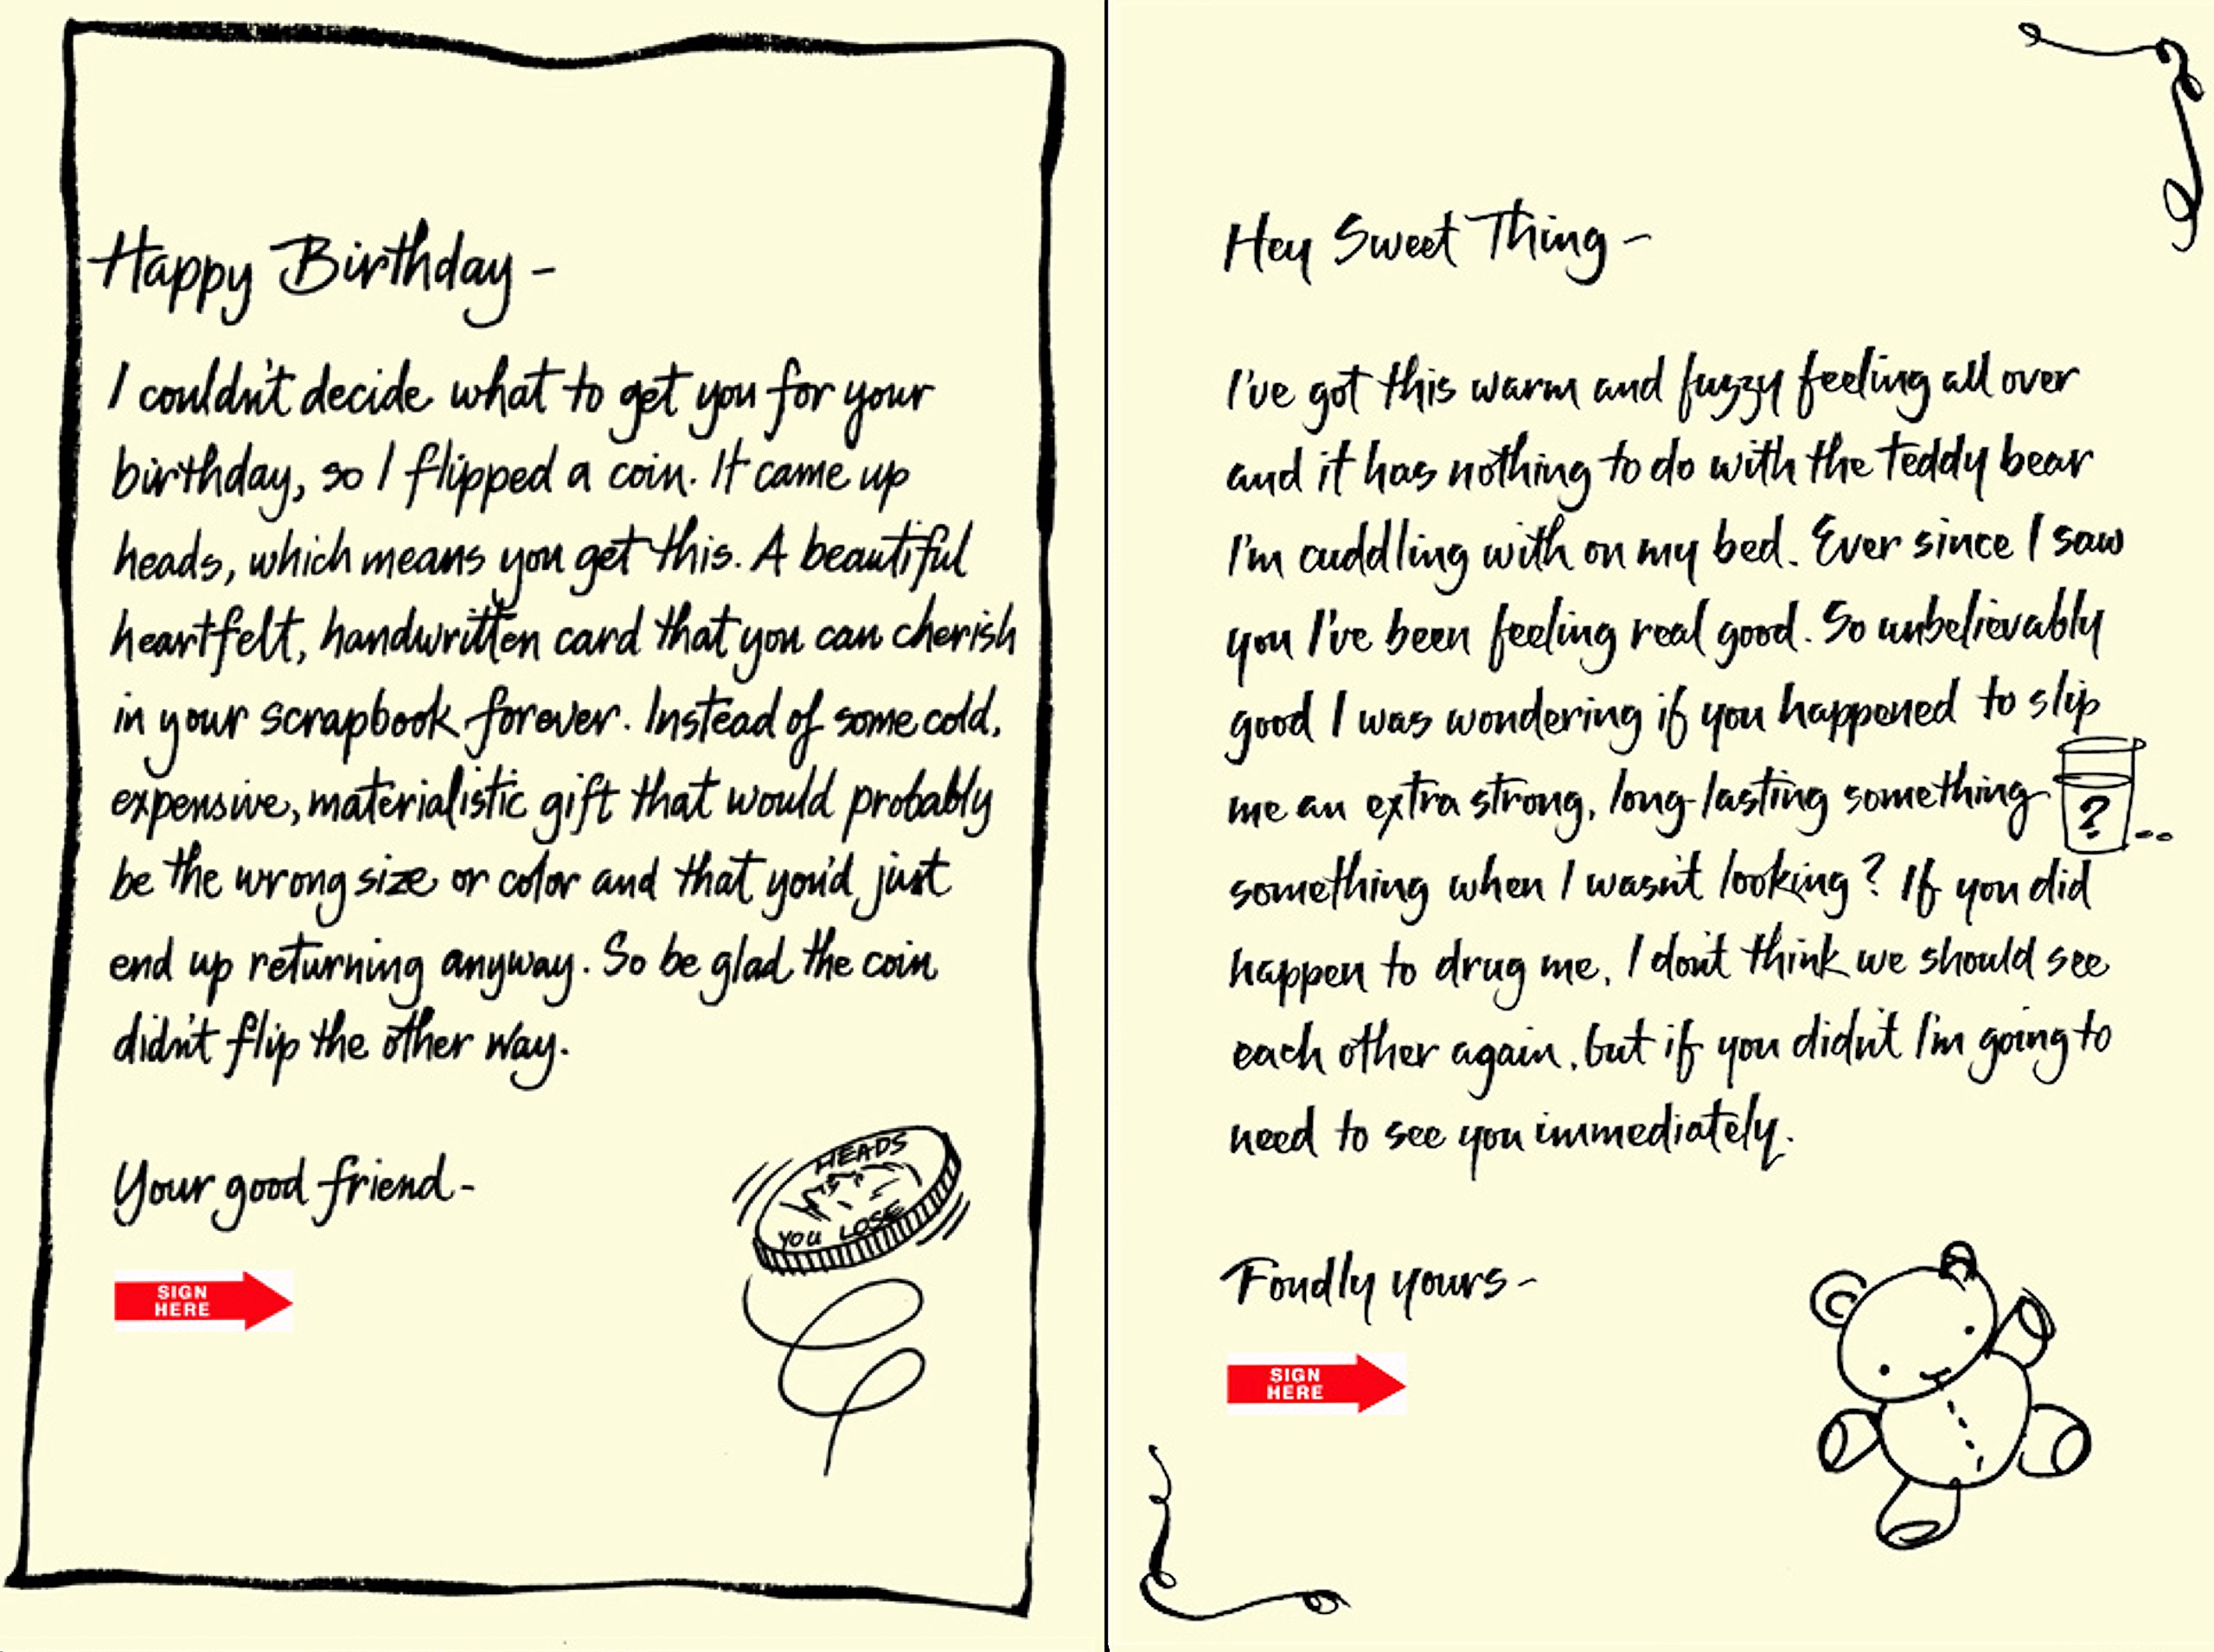 Happy Birthday -
I couldn't decide what to get you for your
birthday, so I flipped a coin. It came up
heads, which means you get this. A beautiful
heartfelt, handwritten card that you can cherish
in your scrapbook forever. Instead of some cold,
expensive, materialistic gift that would probably
be the wrong size or color and that you'd just
end up returning anyway. So be glad the coin
didn't flip the other way.
Your good friend -
SIGN
HERE
HEADS
YOU LOSE
Hey Sweet Thing -
I've got this warm and fuzzy feeling all over
and it has nothing to do with the teddy bear
I'm cuddling with on my bed. Ever since I saw
you I've been feeling real good. So unbelievably
good I was wondering if you happened to slip
me an extra strong, long-lasting something
?
something when I wasn't looking? If you did
happen to drug me, I don't think we should see
each other again, but if you didn't I'm going to
need to see you immediately.
Fondly yours -
SIGN
HERE